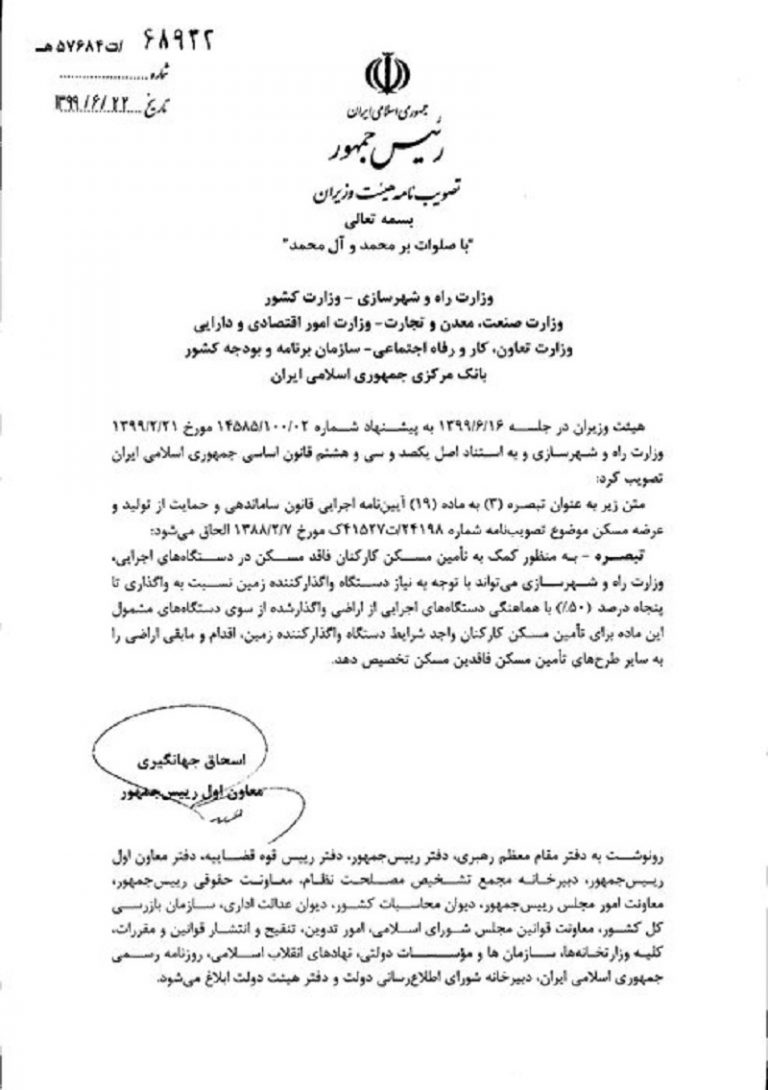 ۶۸۹۲۲ /ت۵۷۶۸۴هـ
شماره
تاریخ ۱۳۹۹/۶/۲۲
جمهوری اسلامی ایران
رئیس جمهور
تصویب نامه هیئت وزیران
بسمه تعالی
"با صلوات بر محمد و آل محمد"
وزارت راه و شهرسازی – وزارت کشور
وزارت صنعت، معدن و تجارت- وزارت امور اقتصادی و دارایی
وزارت تعاون، کار و رفاه اجتماعی- سازمان برنامه و بودجه کشور
بانک مرکزی جمهوری اسلامی ایران
هیئت وزیران در جلسه ۱۳۹۹/۶/۱۶ به پیشنهاد شماره ۱۴۵۸۵/۱۰۰/۰۲ مورخ ۱۳۹۹/۲/۲۱
وزارت راه و شهرسازی و به استناد اصل یکصد و سی و هشتم قانون اساسی جمهوری اسلامی ایران
تصویب کرد:
متن زیر به عنوان تبصره (۳) به ماده (۱۹) آیین‌نامه اجرایی قانون ساماندهی و حمایت از تولید و
عرضه مسکن موضوع تصویب‌نامه شماره ۲۴۱۹۸/ت۴۱۵۲۷ک مورخ ۱۳۸۸/۲/۷ الحاق می‌شود:
تبصره – به منظور کمک به تأمین مسکن کارکنان فاقد مسکن در دستگاه‌های اجرایی،
وزارت راه و شهرسازی می‌تواند با توجه به نیاز دستگاه واگذارکننده زمین نسبت به واگذاری تا
پنجاه درصد (۵۰٪) با هماهنگی دستگاه‌های اجرایی از اراضی واگذارشده از سوی دستگاه‌های مشمول
این ماده برای تأمین مسکن کارکنان واجد شرایط دستگاه واگذارکننده زمین، اقدام و مابقی اراضی را
به سایر طرح‌های تأمین مسکن فاقدین مسکن تخصیص دهد.
اسحاق جهانگیری
معاون اول رییس‌جمهور
رونوشت به دفتر مقام معظم رهبری، دفتر رییس‌جمهور، دفتر رییس قوه قضاییه، دفتر معاون اول
رییس‌جمهور، دبیرخانه مجمع تشخیص مصلحت نظام، معاونت حقوقی رییس‌جمهور،
معاونت امور مجلس رییس‌جمهور، دیوان محاسبات کشور، دیوان عدالت اداری، سازمان بازرسی
کل کشور، معاونت قوانین مجلس شورای اسلامی، امور تدوین، تنقیح و انتشار قوانین و مقررات،
کلیه وزارتخانه‌ها، سازمان ها و مؤسسات دولتی، نهادهای انقلاب اسلامی، روزنامه رسمی
جمهوری اسلامی ایران، دبیرخانه شورای اطلاع‌رسانی دولت و دفتر هیئت دولت ابلاغ می‌شود.